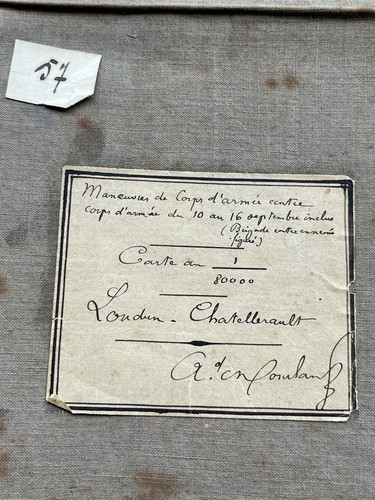 57
Manœuvres de Corps d'armée contre
corps d'armée du 10 au 16 septembre inclus
(Brigade contre ennemi
figuré)
Carte au 1
80000
Loudun - Chatellerault